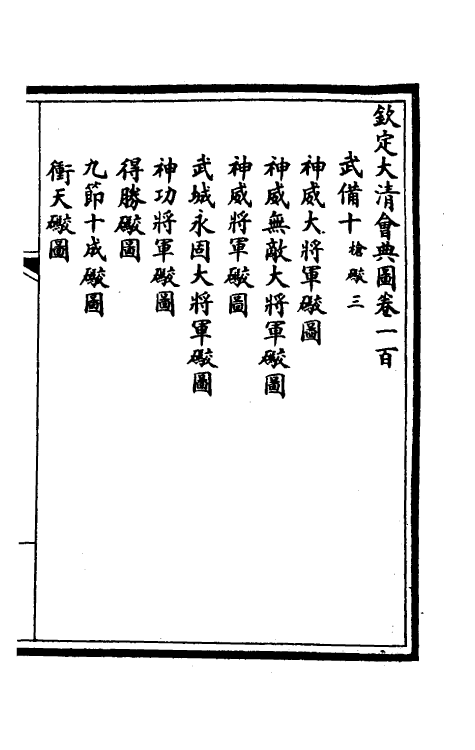 欽定大清會典圖卷一百
武備十 槍礮三
神威大將軍礮圖
神威無敵大將軍礮圖
神威將軍礮圖
武城永固大將軍礮圖
神功將軍礮圖
得勝礮圖
九節十成礮圖
衝天礮圖